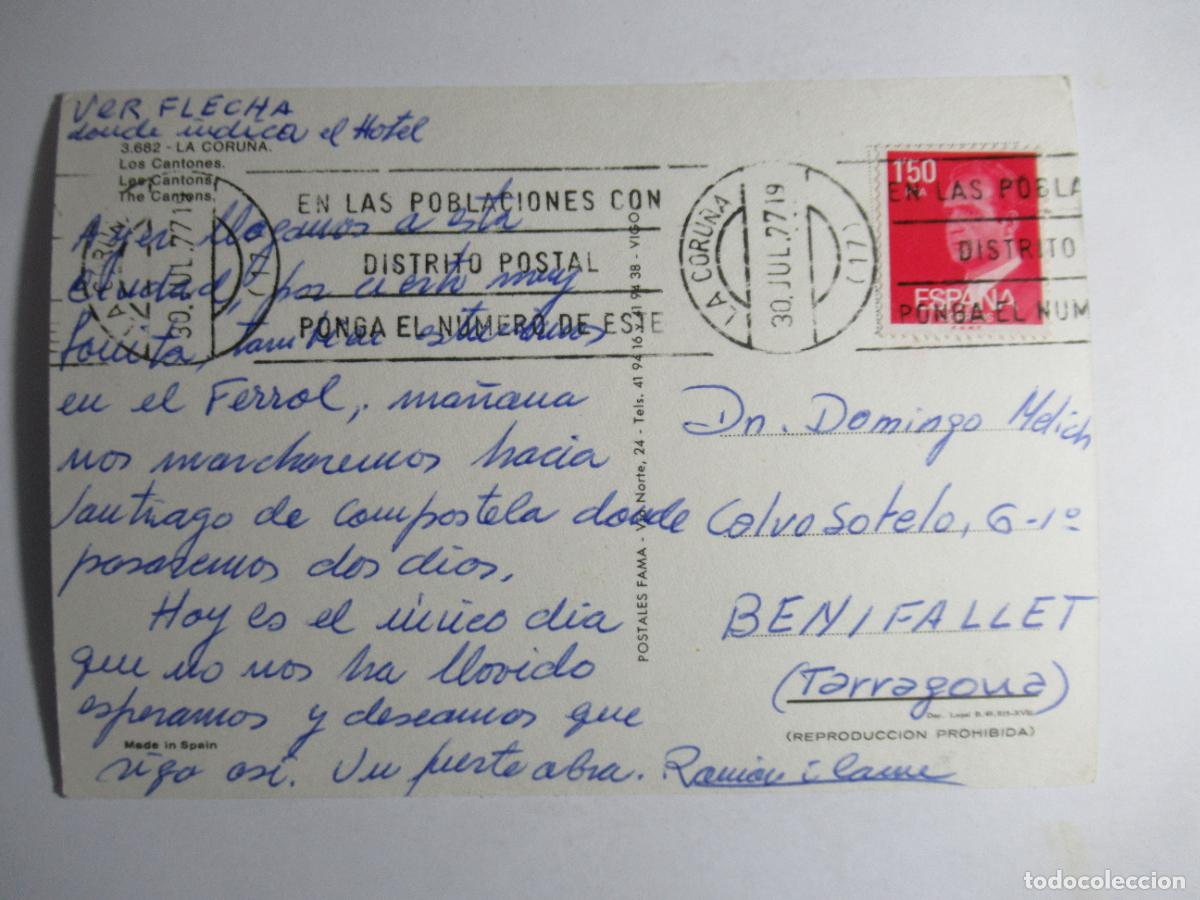 VER FLECHA
donde indica el Hotel
3.682 - LA CORUÑA.
Los Cantones.
Les Cantons.
The Cantons.
LA CORUÑA
30. JUL. 77 19
(17)
EN LAS POBLACIONES CON
DISTRITO POSTAL
PONGA EL NUMERO DE ESTE
LA CORUÑA
30. JUL. 77 19
(17)
EN LAS POBLA
DISTRITO
PONGA EL NUM
1'50
PTA
ESPAÑA
CORREOS
F.N.M.T.
Ayer llegamos a esta
Ciudad, por cierto muy
bonita, también estuvimos
en el Ferrol, mañana
nos marcharemos hacia
Santiago de Compostela donde
pasaremos dos dias.
Hoy es el único dia
que no nos ha llovido
esperamos y deseamos que
siga asi. Un fuerte abra. Ramón i
POSTALES FAMA - Vía Norte, 24 - Tels. 41 94 16 y 41 94 38 - VIGO
Dn. Domingo Melich
Calvo Sotelo, 6-1º
BENIFALLET
(Tarragona)
Dep. Legal B.
(REPRODUCCION PROHIBIDA)
Made in Spain
todocoleccion